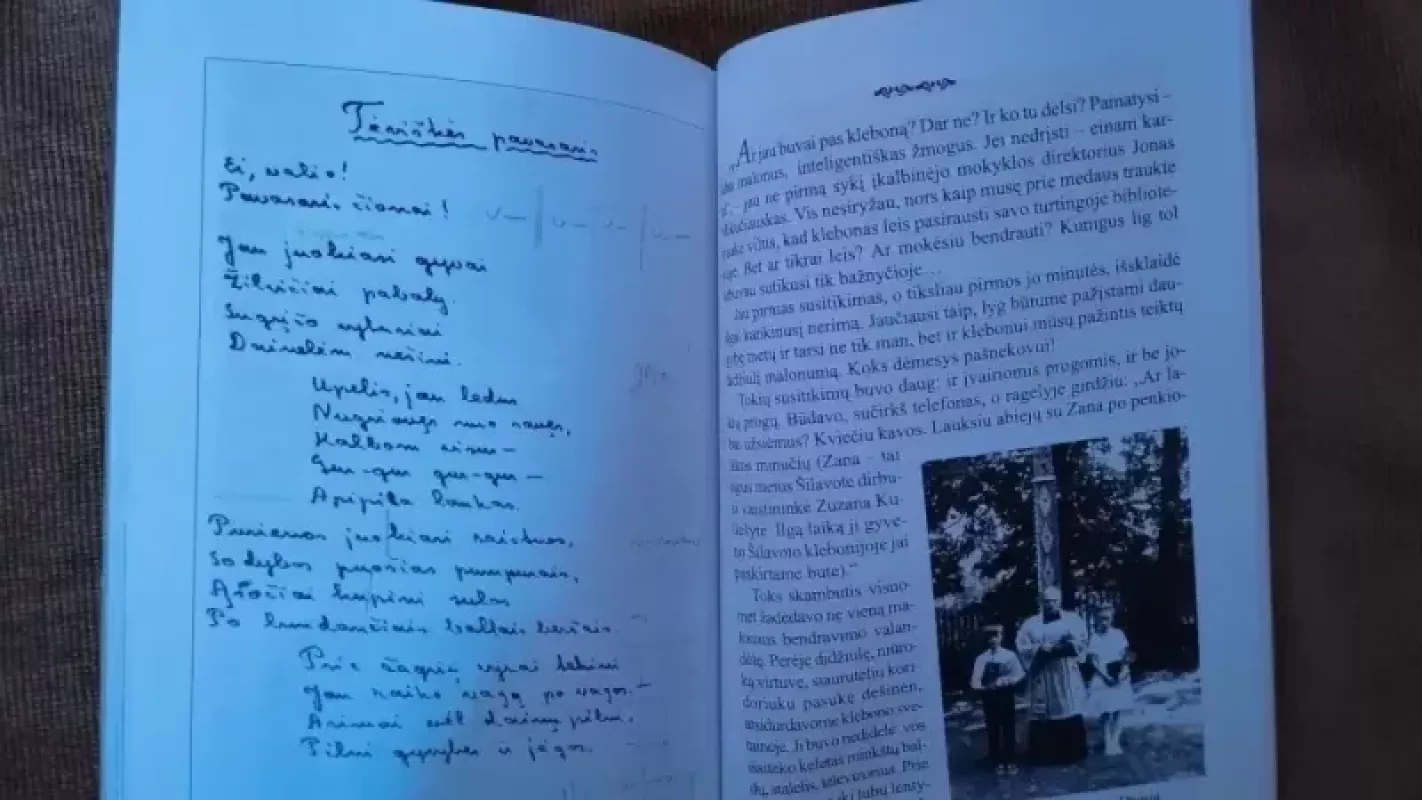 Tėviškės pavasaris
Ei, valio!
Pavasaris čionai!
Jau juokiasi gyvai
Žilvičiai pabalę.
Sugrįžo vyturiai
Dainelėm nešini.
Upelis, jau ledus
Nugriovęs nuo savęs,
Kalbom eina –
Gur-gur gur-gur –
Apipila laukus.
Purienos juokiasi raistuos,
Sodybos puošias pumpurais,
Ąsočiai kupini sulos
Po bundančiais baltais beržais.
Prie žagrių vyrai
Jau vagą po vagos –
Arimai vėl dainų pilni,
Pilni gyvybės ir jėgos.
„Ar jau buvai pas kleboną? Dar ne? Ir ko tu delsi? Pamatysi –
malonus, inteligentiškas žmogus. Jei nedrįsti – einam kar-
– jau ne pirmą sykį įkalbinėjo mokyklos direktorius Jonas
Vis nesiryžau, nors kaip musę prie medaus traukte
viltis, kad klebonas leis pasirausti savo turtingoje bibliote-
Bet ar tikrai leis? Ar mokėsiu bendrauti? Kunigus lig tol
sutikusi tik bažnyčioje…
Jau pirmas susitikimas, o tiksliau pirmos jo minutės, išsklaidė
kankinusį nerimą. Jaučiausi taip, lyg būtume pažįstami dau-
metų ir tarsi ne tik man, bet ir klebonui mūsų pažintis teiktų
didžiulį malonumą. Koks dėmesys pašnekovui!
Tokių susitikimų buvo daug: ir įvairiomis progomis, ir be jo-
progų. Būdavo, sučirkš telefonas, o ragelyje girdžiu: „Ar la-
be užsiėmus? Kviečiu kavos. Lauksiu abiejų su Zana po penkio-
minučių (Zana – tai
metus Šilavote dirbu-
vaistininkė Zuzana Ku-
Ilgą laiką ji gyve-
Šilavoto klebonijoje jai
paskirtame bute).“
Toks skambutis visuo-
met žadėdavo ne vieną ma-
lonaus bendravimo valan-
dėlę. Perėję didžiulę, niūro-
ką virtuvę, siauruteliu kori-
doriuku pasukę dešinėn,
atsidurdavome klebono sve-
tainėje. Ji buvo nedidelė: vos
užteko keletas minkštų bal-
dų, stalelis, televizorius. Prie
lubų lenty-